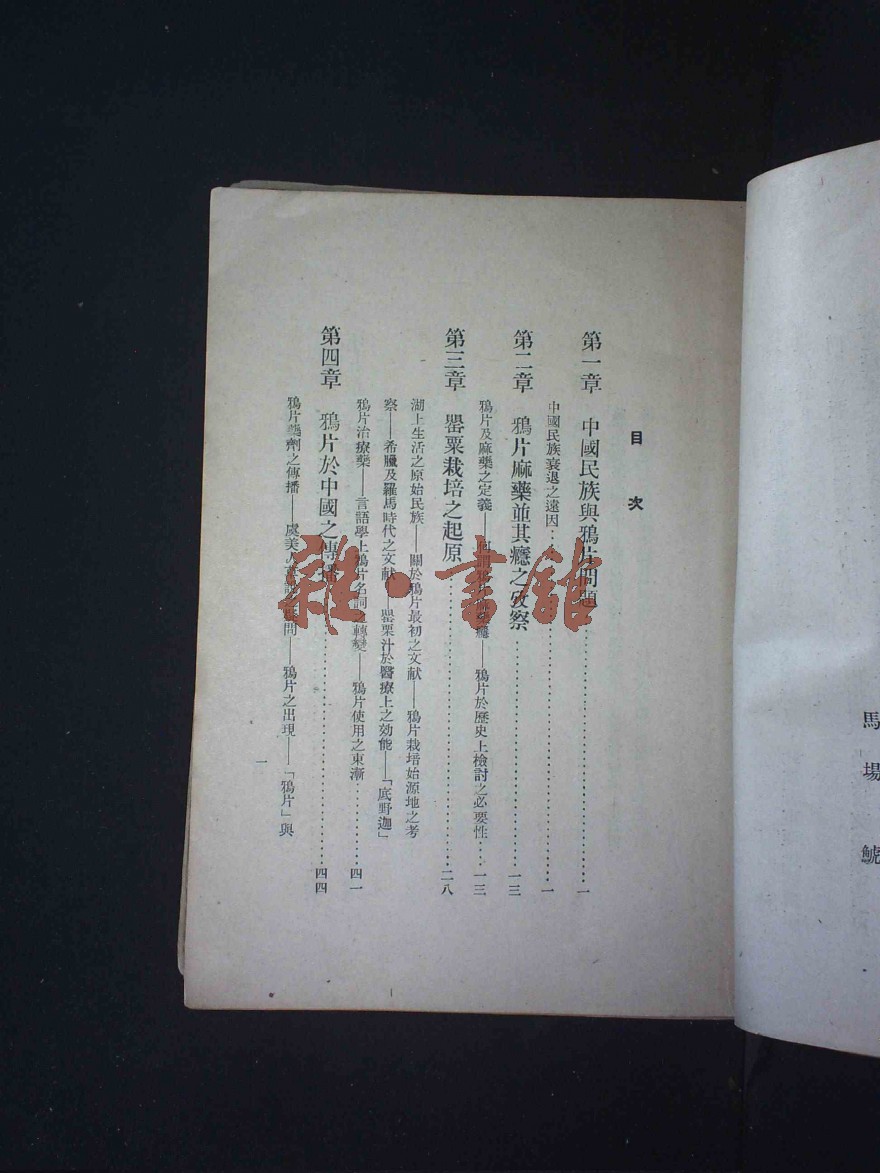 目次
第一章 中國民族與鴉片問題……一
中國民族衰退之遠因……一
第二章 鴉片麻藥並其癮之攷察……一三
鴉片及麻藥之定義——何謂鴉片麻藥癮——鴉片於歷史上檢討之必要性……一三
第三章 罌粟栽培之起原……二八
湖上生活之原始民族——關於鴉片最初之文献——鴉片栽培始源地之考
察——希臘及羅馬時代之文献——罌粟汁於醫療上之効能——「底野迦」
鴉片治療藥——言語學上鴉片名詞之轉變——鴉片使用之東漸……四一
第四章 鴉片於中國之傳播……四四
鴉片藥劑之傳播——虞美人草說之疑問——鴉片之出現——「鴉片」與
一
馬場鯱
雜·書館